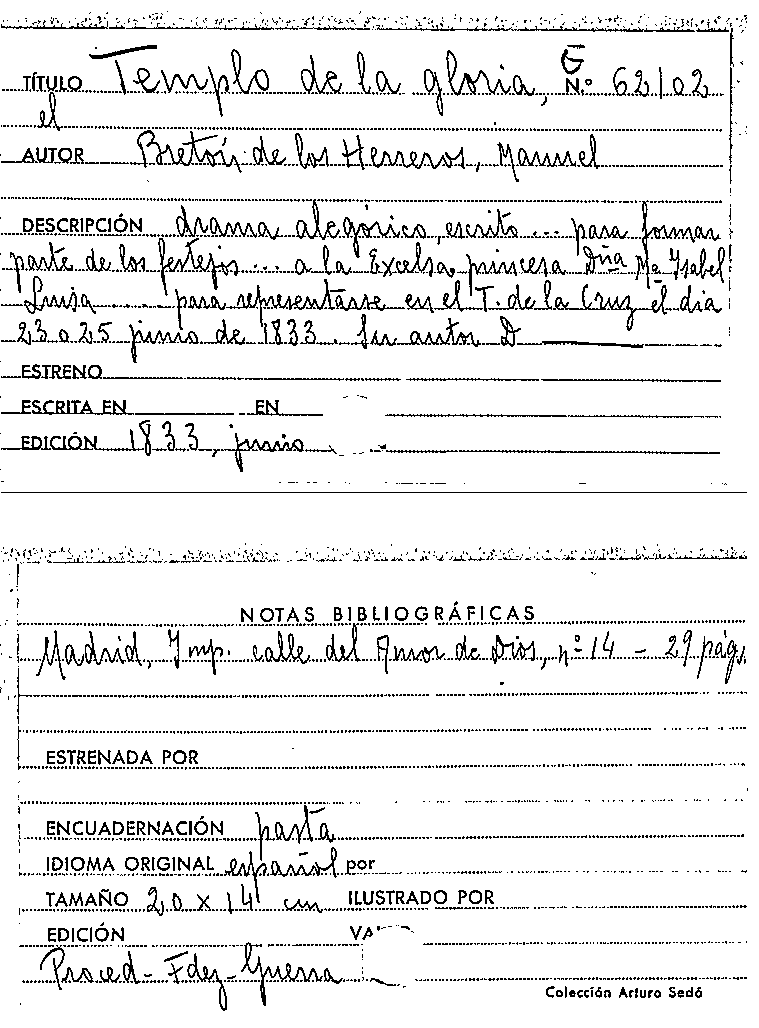 TÍTULO Templo de la gloria, G N.º 62102
el
AUTOR Bretón de los Herreros, Manuel
DESCRIPCIÓN drama alegórico, escrito ... para formar
parte de los festejos ... a la Excelsa princesa Dña Mª Isabel
Luisa ..... para representarse en el T. de la Cruz el dia
23 o 25 junio de 1833. Su autor D
ESTRENO
ESCRITA EN EN
EDICIÓN 1833, junio
NOTAS BIBLIOGRÁFICAS
Madrid, Imp. calle del Amor de Dios, nº 14 - 29 págs.
ESTRENADA POR
ENCUADERNACIÓN pasta
IDIOMA ORIGINAL español por
TAMAÑO 20 x 14 cm ILUSTRADO POR
EDICIÓN VA
Proced - Fdez - Guerra
Colección Arturo Sedó